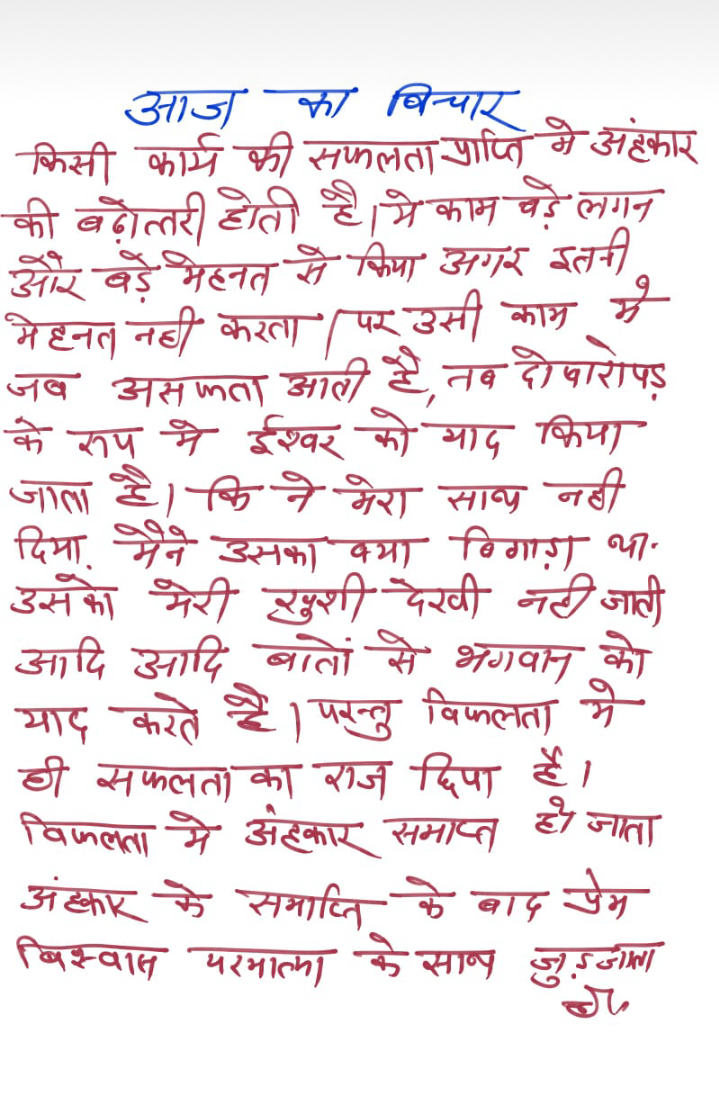 आज का बिचार
किसी कार्य की सफलता प्राप्ति मे अंहकार
की बढ़ोत्तरी होती है। मे काम बड़े लगन
और बड़े मेहनत से किया अगर इतनी
मेहनत नही करता । पर उसी काम मे
जब असफता आती है, तब दोषारोपड़
के रूप मे ईश्वर को याद किया
जाता है। कि ने मेरा साथ नही
दिया. मैने उसका क्या बिगाड़ा था.
उसको मेरी खुशी देखी नही जाती
आदि आदि बातों से भगवान को
याद करते है । परन्तु विफलता मे
ही सफलता का राज छिपा है।
विफलता मे अंहकार समाप्त हो जाता
अंहकार के समाप्ति के बाद प्रेम
बिश्वास परमात्मा के साथ जुड़ जाता
है।